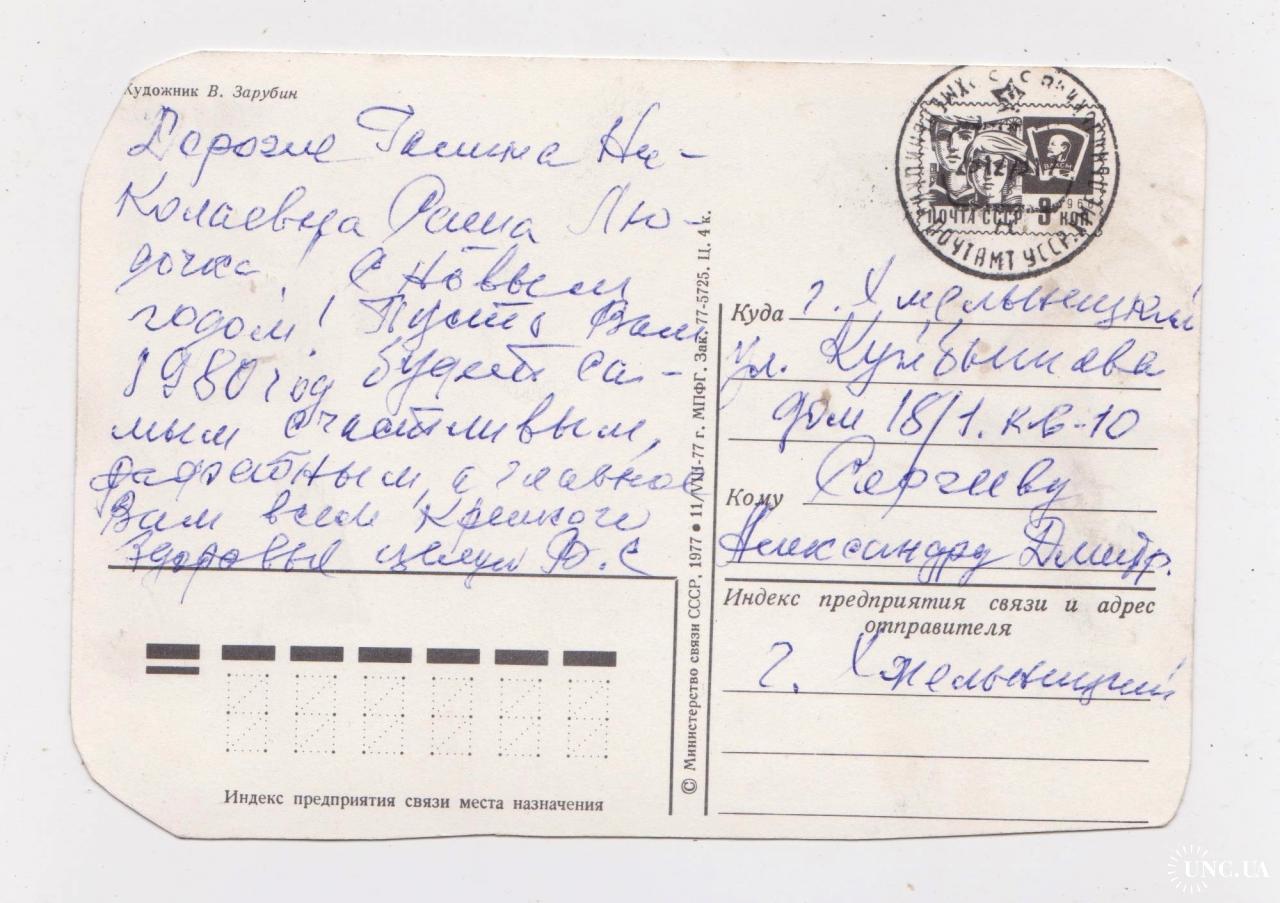 Художник В. Зарубин
Дорогие Галина Ни-
колаевна Саша Лю-
дочка! С Новым
годом! Пусть Вам
1980 год будет са-
мым счастливым,
а главное
Вам всем крепкого
здоровья целую Ф. С
© Министерство связи СССР, 1977 • 11/VIII-77 г. МПФГ. Зак. 77-5725. Ц. 4 к.
ПОЧТА СССР 3 коп
1966
ВЛКСМ
ПОЧТАМТ УССР
Куда г. Хмельницкий
ул. Куйбышева
дом 18/1. кв-10
Кому Сергееву
Александру Дмитр.
Индекс предприятия связи и адрес
отправителя
г. Хмельницкий
Индекс предприятия связи места назначения
UNC.UA